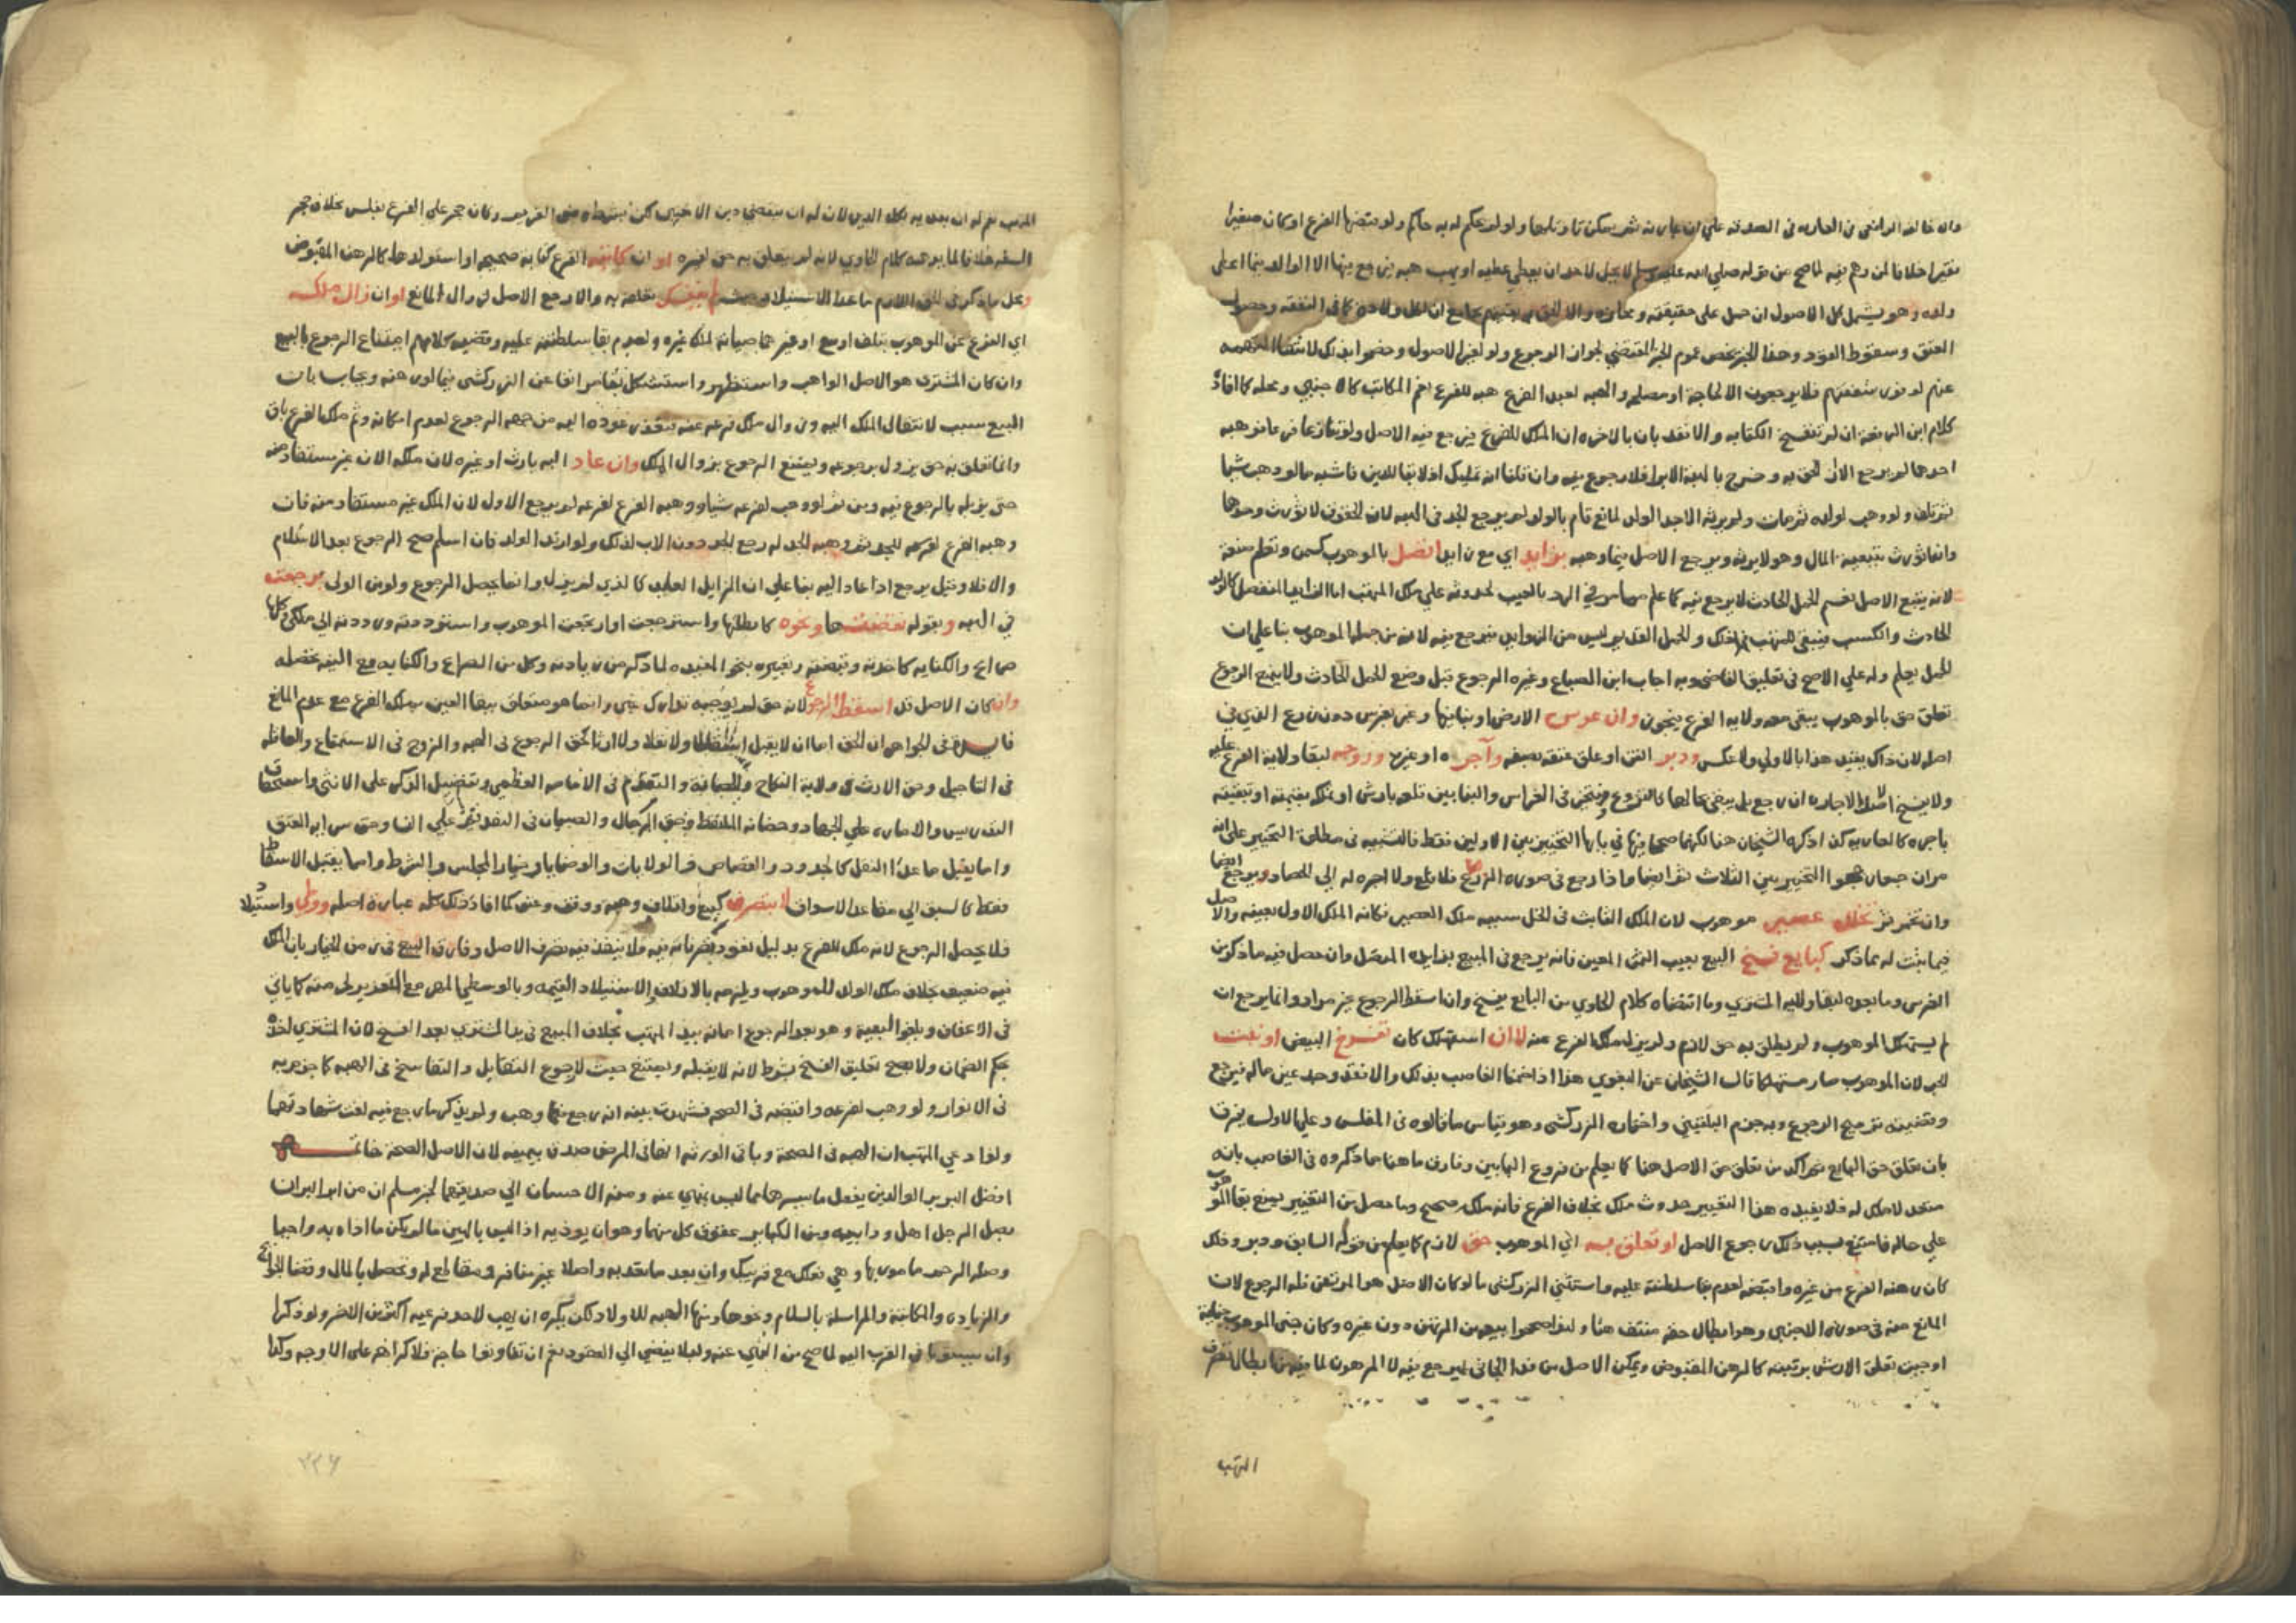 وان خالفه الرافعي في العاريه في الصدقه علي ان عبارته ثم يمكن تاويلها ولو لم يحكم له به حاكم ولو قبضها الفرع او كان صغيرا
فقيرا خلافا لمن وهم فيه لما صح من قوله صلي الله عليه وسلم لا يحل لاحد ان يعطي عطيه او يهب هبه فيرجع فيها الا الوالد فيما اعطي
ولده وهو يشمل كل الاصول ان حمل على حقيقته ومجازه والا الحق به بقيتهم بجامع ان لكل ولاده كما في النفقه وحصول
العتق وسقوط القود وهذا الخبر يخص عموم الخبر المقتضي لجواز الرجوع ولو لغير الاصول وخصوا بذلك لانتفا التهمه
عنهم لوفور شفقتهم فلا يرجعون الا لحاجة او مصلحه والهبه لعبد الفرع هبه للفرع نعم المكاتب كالاجنبي ومحله كما افاده
كلام ابن الرفعة ان لم تنفسخ الكتابه والا فقد بان بالاخره ان الملك للفرع فيرجع فيه الاصل ولو تنازعا فرعا ثم وهبه
احدهما لم يرجع الان لحق به وخرج بالهبة الابرا فلا رجوع فيه وان قلنا انه تمليك اذ لا بقا للدين فاشبه ما لو وهب شيا
فتلف ولو وهب لولده ثم مات ولم يرثه الا جد الولد لمانع قام بالولد لم يرجع الجد في الهبه لان الحقوق لا تورث وحدها
وانما تورث بتبعيه المال وهو لا يرثه ويرجع الاصل فيما وهبه بزايد اي مع زايد اتصل بالموهوب كسمن وتعلم صنعة
لانه يتبع الاصل نعم الحمل الحادث لا يرجع فيه كما علم مما مر في الرد بالعيب لحدوثه علي ملك المتهب اما الزايد المنفصل كالولد
الحادث والكسب فيبقى للمتهب كذلك والحمل القديم ليس من الزوايد فيرجع فيه لانه من جملة الموهوب بنا علي ان
الحمل يعلم وله علي الاصح في تعليق القاضي وبه اجاب ابن الصباغ وغيره الرجوع قبل وضع الحمل الحادث ولا يمنع الرجوع
تعلق حق بالموهوب يبقى معه ولايه الفرع فيجوز وان غرس الارض او بنا فيها وعبر بغرس دون زرع الذي في
اصله لان ذاك يفيد هذا بالاولي ولا عكس ودبر القن او علق عتقه بصفه وآجره او غيره وزوجه لبقا ولاية الفرع عليه
ولا يفسخ الاصل الاجاره ان رجع بل يبقى بحالها كالتزويج ويتخير في الغراس والبنا بين قلعه بارش او تملكه بقيمته او تبقيته
باجره كالعاريه كذا ذكره الشيخان هنا لكنهما صححا فيها في بابها التخيير بين الاولين فقط فالتشبيه في مطلق التخيير على انه
مر ان جماعا صححوا التخيير بين الثلاث ثم ايضا وما اذا رجع في صورة الزرع فلا يقلع ولا اجره له الي الحصاد ويرجع ايضا
وان تخمر ثم تخلل عصير موهوب لان الملك الثابت في الخل سببه ملك العصير فكانه الملك الاول بعينه والاصل
فيما يثبت له بما ذكر كبايع فسخ البيع بعيب الثمن المعين فانه يرجع في المبيع بزايده المتصل وان حصل فيه ما ذكر من
الغرس وما بعده لبقا ولايه المشتري وما اقتضاه كلام الحاوي من البايع يفسخ وان اسقط الرجوع غير مراد وانما يرجع ان
لم يستهلك الموهوب ولم يتعلق به حق لازم ولم يزل ملك الفرع عنه لا ان استهلك كان تفرخ البيض او نبت
الحب لان الموهوب صار مستهلكا قال الشيخان عن البغوي هذا اذا ضمنا الغاصب بذلك والا فقد وجد عين ماله فيرجع
وقضيته ترجيح الرجوع وبه جزم البلقيني واختاره الزركشي وهو قياس ما قالوه في المفلس وعلي الاول يفرق
بان تعلق حق البايع ثم اكد من تعلق حق الاصل هنا كما يعلم من فروع البابين وفارق ما هنا ما ذكروه في الغاصب بانه
متعد لا ملك له فلا يفيده هذا التغيير حدوث ملك بخلاف الفرع فانه ملك صحيح وما حصل من التغيير يمنع بقا الموهوب
علي حاله فامتنع بسبب ذلك رجوع الاصل او تعلق به اي الموهوب حق لازم كما يعلم من قوله السابق ودبر وذلك
كان رهنه الفرع من غيره واقبضه لعدم بقا سلطنة عليه واستثني الزركشي ما لو كان الاصل هو المرتهن فله الرجوع لان
المانع منه في صورة الاجنبي وهو ابطال حقه منتف هنا ولهذا صححوا بيعه من المرتهن دون غيره وكان جنى الموهوب جناية
اوجبت تعلق الارش برقبته كالرهن المقبوض ويمكن الاصل من فدا الجاني ليرجع فيه لا المرهون لما فيه من ابطال تصرف
المتهب
المتهب نعم له ان يفديه بكل الدين لان له ان يقضي دين الاجنبي لكن بشرط رضى الغريم وكان حجر علي الفرع بفلس بخلاف حجر
السفه خلافا لما يوهمه كلام الحاوي لانه لم يتعلق به حق لغيره او ان كاتبه الفرع كتابة صحيحه او استولدها كالرهن المقبوض
ومحل ما ذكر في الحق اللازم ما عدا الاستيلاد حيث لم ينفك تعلقه به والا رجع الاصل لزوال المانع او ان زال ملكه
اي الفرع عن الموهوب بتلف او بيع او غيرهما صيانة لملك غيره ولعدم بقا سلطنته عليه وقضية كلامهم امتناع الرجوع بالبيع
وان كان المشتري هو الاصل الواهب واستظهر واستشكل بما مر انفا عن الزركشي فيما لو رهنه ويجاب بان
البيع سبب لانتقال الملك اليه وزوال ملك فرعه عنه فتعذر عوده اليه من جهه الرجوع لعدم امكانه وثم ملك الفرع باق
وانما تعلق به حق يزول برجوعه ويمتنع الرجوع بزوال الملك وان عاد اليه بارث او غيره لان ملكه الان غير مستفاد منه
حتى يزيله بالرجوع فيه ومن ثم لو وهب لفرعه شيا ووهبه الفرع لفرعه لم يرجع الاول لان الملك غير مستفاد منه فان
وهبه الفرع لفرعه للجد ثم وهبه الجد له رجع الجد دون الاب لذلك ولو ارتد الولد فان اسلم صح الرجوع بعد الاسلام
والا فلا وقيل يرجع اذا عاد اليه بنا علي ان الزايل العايد كالذي لم يزل وانما يحصل الرجوع ولو من الولي برجعت
في الهبه وبقوله نقضتها ونحوه كابطلتها واسترجعت او ارتجعت الموهوب واستوددته ورددته الي ملكي كلها
صرايح والكنايه كاخذته وقبضته وتعبيره بنحو المفيده لما ذكر من زيادته وكل من الصرايح والكنايه مع النيه يحصله
وان كان الاصل قد اسقط الرجوع لانه حق لم يوجبه تدارك غبن وانما هو متعلق ببقا العين بملك الفرع مع عدم المانع
فايدة في الجواهر ان الحق اما ان لا يقبل اسقاطا ولا نقلا ولا ارثا كحق الرجوع في الهبه والزوج في الاستمتاع والعاقله
في التاجيل وحق الارث في ولاية النكاح والحضانة والتقدم في الامامه العظمي وتفضيل الذكر على الانثي واستحقاق
التدريس والاماره علي الجهاد وحضانه الملتقط وحق الرجال والصبيان في التقديم علي النسا وحق سرايه العتق
واما يقبل ما عدا النقل كالحدود والقصاص والولايات والوصايا وخيار المجلس والشرط واما يقبل الاسقاط
فقط كالسبق الي مقاعد الاسواق لا بتصرف كبيع واتلاف وهبه ووقف وعتق كما افاد ذلك كله عبارة اصله ووطي واستيلاد
فلا يحصل الرجوع لانه ملك للفرع بدليل نفوذ تصرفاته فيه فلا ينفذ فيه تصرف الاصل وفارق البيع في زمن الخيار بان الملك
فيه ضعيف بخلاف ملك الولد للموهوب ويلزمه بالاتلاف والاستيلاد القيمه وبالوطي المهر مع التعزير لحرمته كما ياتي
في الاعفاف ويلغو البقيه وهو بعد الرجوع امانه بيد المتهب بخلاف المبيع في يد المشتري بعد الفسخ لان المشتري اخذه
بحكم الضمان ولا يصح تعليق الفسخ بشرط لانه لا يقبله ويمتنع حيث لا رجوع التقايل والتفاسخ في الهبه كما جزم به
في الانوار ولو وهب لفرعه واقبضه في الصحه فشهدت بينه انه رجع فيما وهب ولم يذكر ما رجع فيه لغت شهادتها
ولو ادعي المتهب ان الهبه في الصحة وباقي الورثه انها في المرض صدق بيمينه لان الاصل الصحة خاتمه
افضل البر بر الوالدين بفعل ما يسرهما مما ليس بمنهي عنه ومنه الاحسان الي صديقهما لخبر مسلم ان من ابر البر ان
يصل الرجل اهل ود ابيه ومن الكباير عقوق كل منهما وهو ان يوذيه اذا ليس بالهين ما لم يكن ما اذاه به واجبا
وصله الرحم مامور بها وهي فعلك مع قريبك وان بعد ما تعد به واصلا غير منافر ومقاطع له وتحصل بالمال وقضا الحوايج
والزياده والمكاتبة والمراسله بالسلام ونحوها ومنها الهبه للاولاد لكن يكره ان يهب لاحد فرعيه اكثر من الاخر ولو ذكرا
وان يسبقوا في القرب اليه لما صح من النهي عنه وليلا يفضي الي العقوق نعم ان تفاوتوا حاجة فلا كراهه على الاوجه وكذا